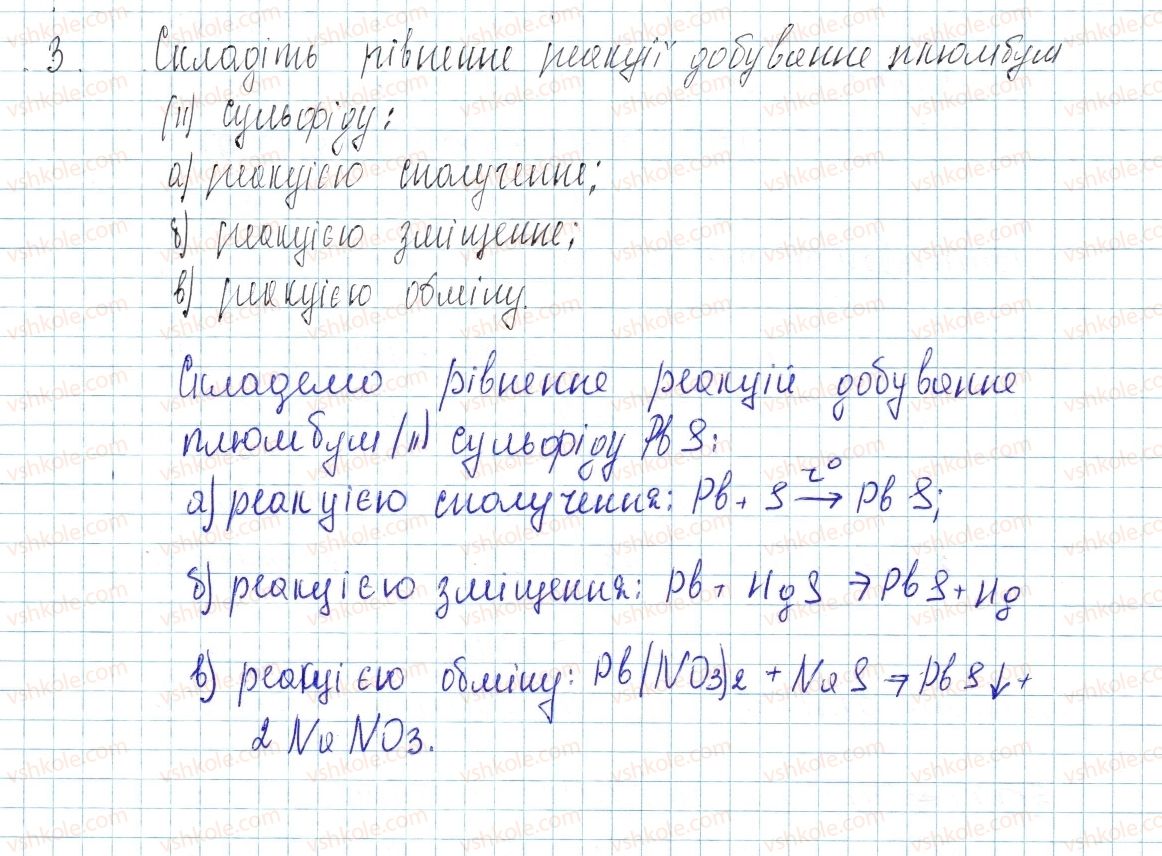 3. Складіть рівнення реакції добування плюмбум
(II) сульфіду:
а) реакцією сполучення;
б) реакцією зміщення;
в) реакцією обміну.
Складемо рівнення реакцій добування
плюмбум (II) сульфіду PbS:
а) реакцією сполучення: Pb + S t° → PbS;
б) реакцією зміщення: Pb + HgS → PbS + Hg
в) реакцією обміну: Pb(NO3)2 + NaS → PbS↓ +
2 NaNO3.